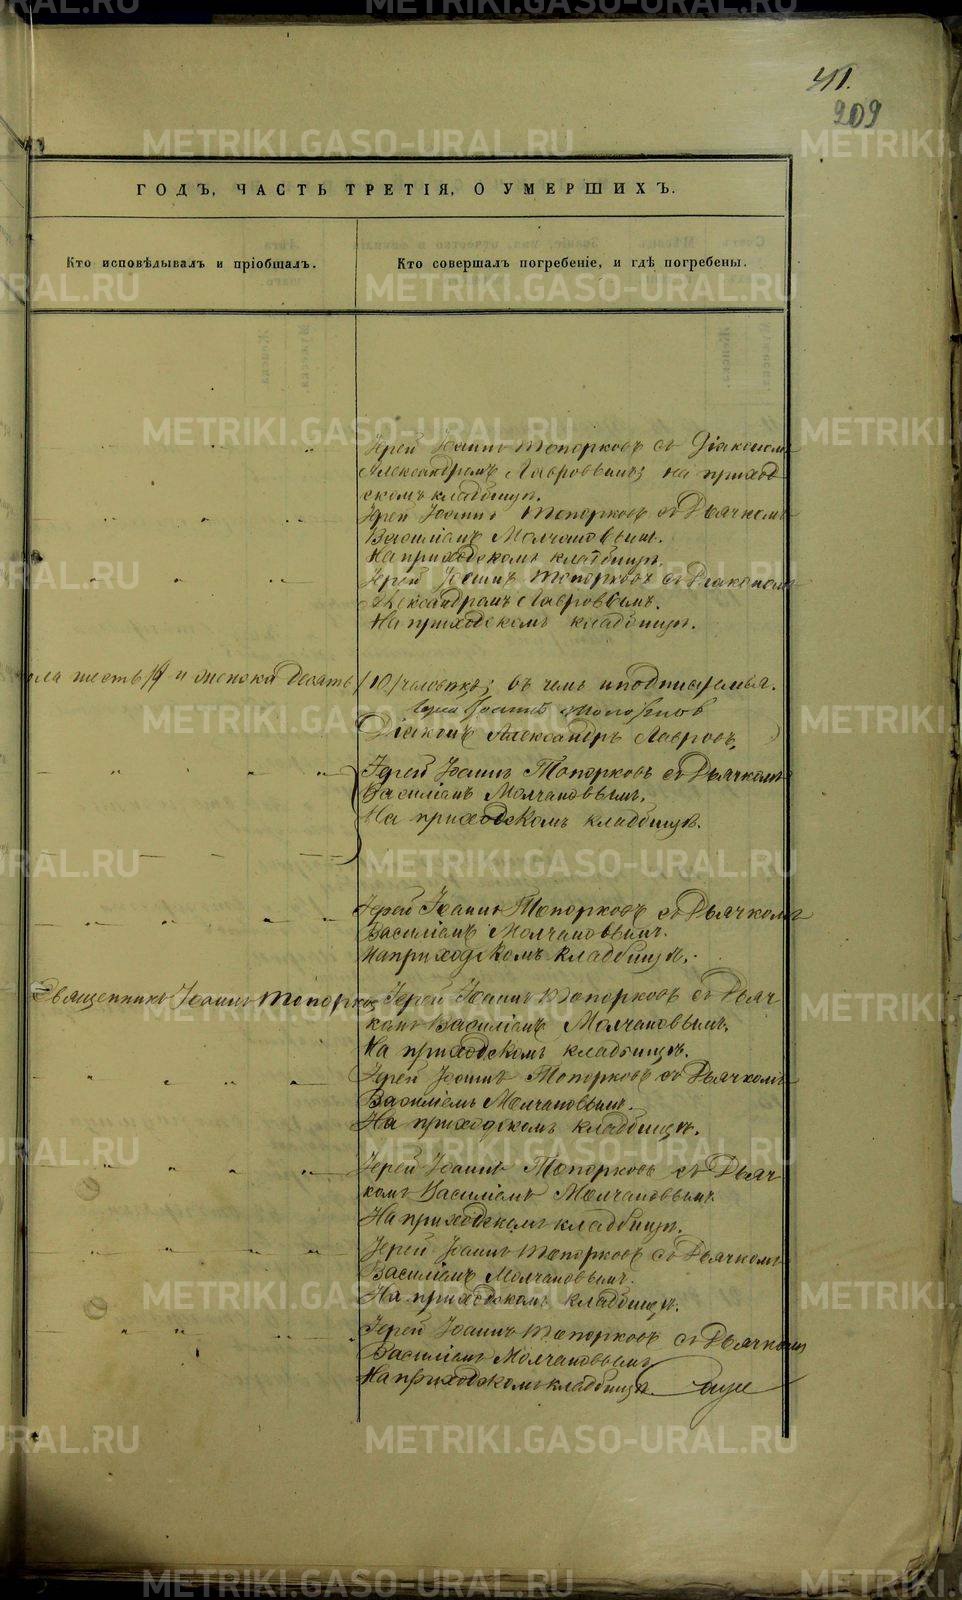 41.
209
ГОДЪ, ЧАСТЬ ТРЕТІЯ, О УМЕРШИХЪ.
Кто исповѣдывалъ и пріобщалъ.
Кто совершалъ погребеніе, и гдѣ погребены.
Іерей Іоаннъ Топорковъ съ Діакономъ
Александромъ Лавровымъ на приход
скомъ кладбищѣ.
Іерей Іоаннъ Топорковъ съ Дьячкомъ
Василіемъ Молчановымъ.
На приходскомъ кладбищѣ.
Іерей Іоаннъ Топорковъ съ Діакономъ
Александромъ Лавровымъ.
На приходскомъ кладбищѣ.
шесть и женска десять /10/ человѣкъ; въ чемъ и подписуемся.
Іерей Іоаннъ Топорковъ
Діаконъ Александръ Лавровъ,
Іерей Іоаннъ Топорковъ съ Дьячкомъ
Василіемъ Молчановымъ,
На приходскомъ кладбищѣ.
Іерей Іоаннъ Топорковъ съ Дьячкомъ
Василіемъ Молчановымъ.
На приходскомъ кладбищѣ.
Священникъ Іоаннъ Топорковъ
Іерей Іоаннъ Топорковъ съ Дьяч
комъ Василіемъ Молчановымъ,
На приходскомъ кладбищѣ.
Іерей Іоаннъ Топорковъ съ Дьячкомъ
Василіемъ Молчановымъ.
На приходскомъ кладбищѣ.
Іерей Іоаннъ Топорковъ съ Дьяч
комъ Василіемъ Молчановымъ.
На приходскомъ кладбищѣ.
Іерей Іоаннъ Топорковъ съ Дьячкомъ
Василіемъ Молчановымъ.
На приходскомъ кладбищѣ.
Іерей Іоаннъ Топорковъ съ Дьячкомъ
Василіемъ Молчановымъ
На приходскомъ кладбищѣ.
METRIKI.GASO-URAL.RU